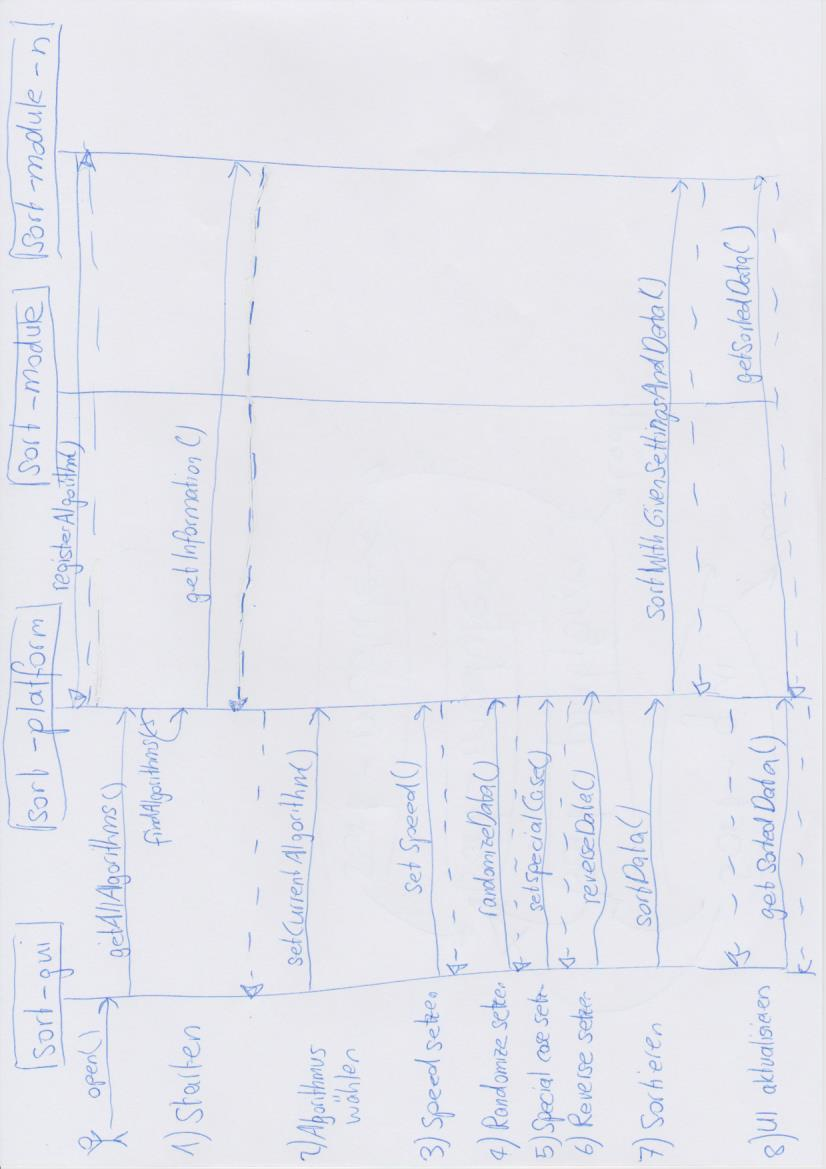 sort-gui
sort-platform
sort-module
sort-module-n
open()
registerAlgorithm()
getAllAlgorithms()
1) Starten
findAlgorithms()
getInformation()
2) Algorithmus
wählen
setCurrentAlgorithm()
3) Speed setzen
setSpeed()
4) Randomize setzen
randomizeData()
5) Special case setzen
setSpecialCase()
6) Reverse setzen
reverseData()
7) Sortieren
sortData()
sortWithGivenSettingsAndData()
8) UI aktualisieren
getSortedData()
getSortedData()